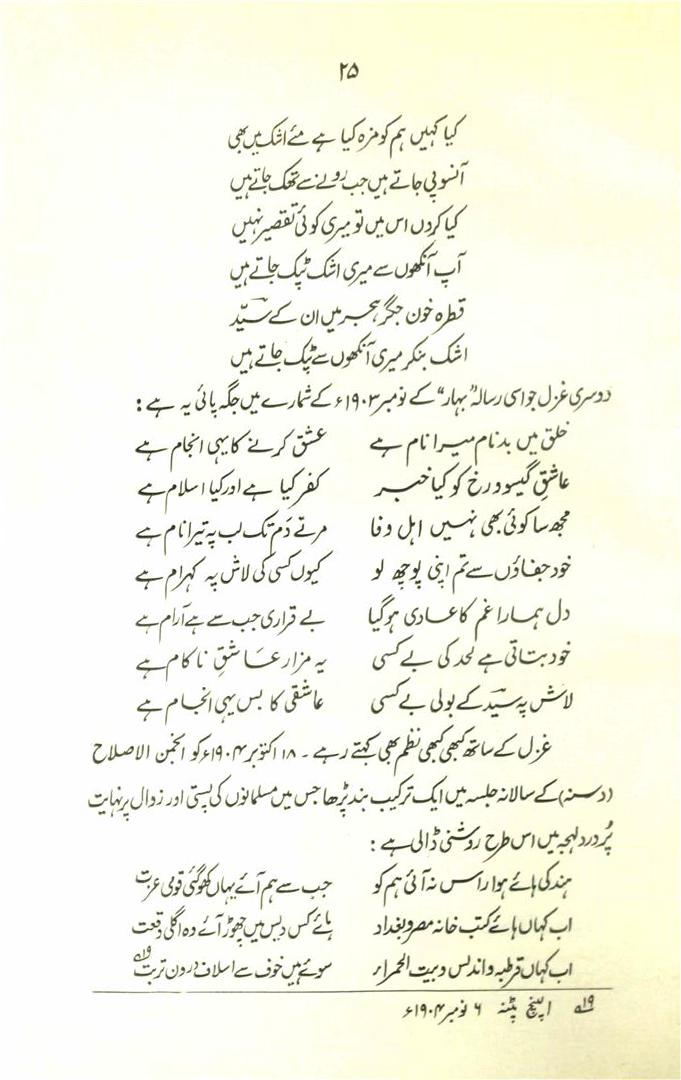 ۲۵
کیا کہیں ہم کو مزہ کیا ہے مئے اشک میں بھی
آنسو پی جاتے ہیں جب رونے سے تھک جاتے ہیں
کیا کروں اس میں تو میری کوئی تقصیر نہیں
آپ آنکھوں سے میری اشک ٹپک جاتے ہیں
قطرہ خون جگر ہجر میں ان کے سیّد
اشک بنکر میری آنکھوں سے ٹپک جاتے ہیں
دوسری غزل جو اسی رسالہ "بہار" کے نومبر ۱۹۰۳ء کے شمارے میں جگہ پائی یہ ہے :
خلق میں بدنام میرا نام ہے عشق کرنے کا یہی انجام ہے
عاشقِ گیسو و رخ کو کیا خبر کفر کیا ہے اور کیا اسلام ہے
مجھ سا کوئی بھی نہیں اہل وفا مرتے دَم تک لب پہ تیرا نام ہے
خود جفاؤں سے تم اپنی پوچھ لو کیوں کسی کی لاش پہ کہرام ہے
دل ہمارا غم کا عادی ہو گیا بے قراری جب سے ہے آرام ہے
خود بتاتی ہے لحد کی بے کسی یہ مزار عاشقِ ناکام ہے
لاش پہ سیّد کے بولی بے کسی عاشقی کا بس یہی انجام ہے
غزل کے ساتھ کبھی کبھی نظم بھی کہتے رہے ۔ ۱۸ اکتوبر ۱۹۰۴ء کو انجمن الاصلاح
(دسنہ) کے سالانہ جلسہ میں ایک ترکیب بند پڑھا جس میں مسلمانوں کی پستی اور زوال پر نہایت
پُر درد لہجہ میں اس طرح روشنی ڈالی ہے :
ہند کی ہائے ہوا راس نہ آئی ہم کو جب سے ہم آئے یہاں کھو گئی قومی عزت
اب کہاں ہائے کتب خانہ مصر و بغداد ہائے کس دیس میں چھوڑ آئے وہ اگلی وقعت
اب کہاں قرطبہ و اندلس و بیت الحمراء سوئے ہیں خوف سے اسلاف درون تربت ۱۹؎
۱۹؎ اپنچ پٹنہ ۶ نومبر ۱۹۰۴ء